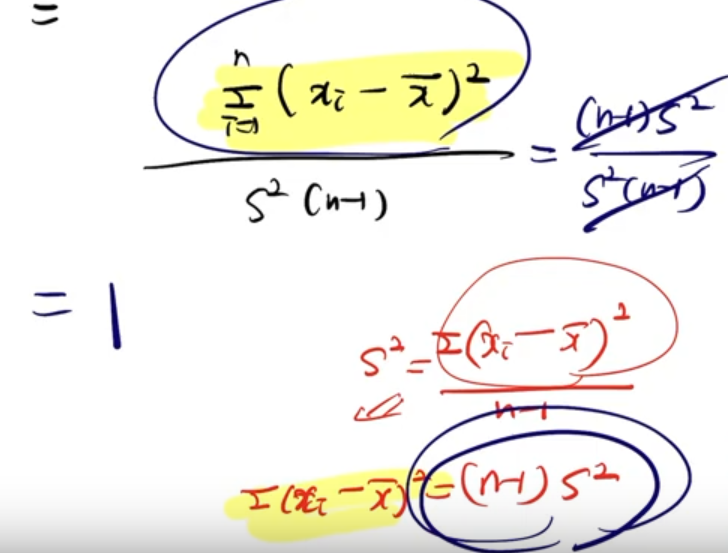 =
n
Σ (xᵢ − x̄)²
i=1
s² (n−1)
= (n−1) s²
s² (n−1)
= 1
s² = Σ(xᵢ − x̄)²
n−1
Σ(xᵢ − x̄)² = (n−1) s²